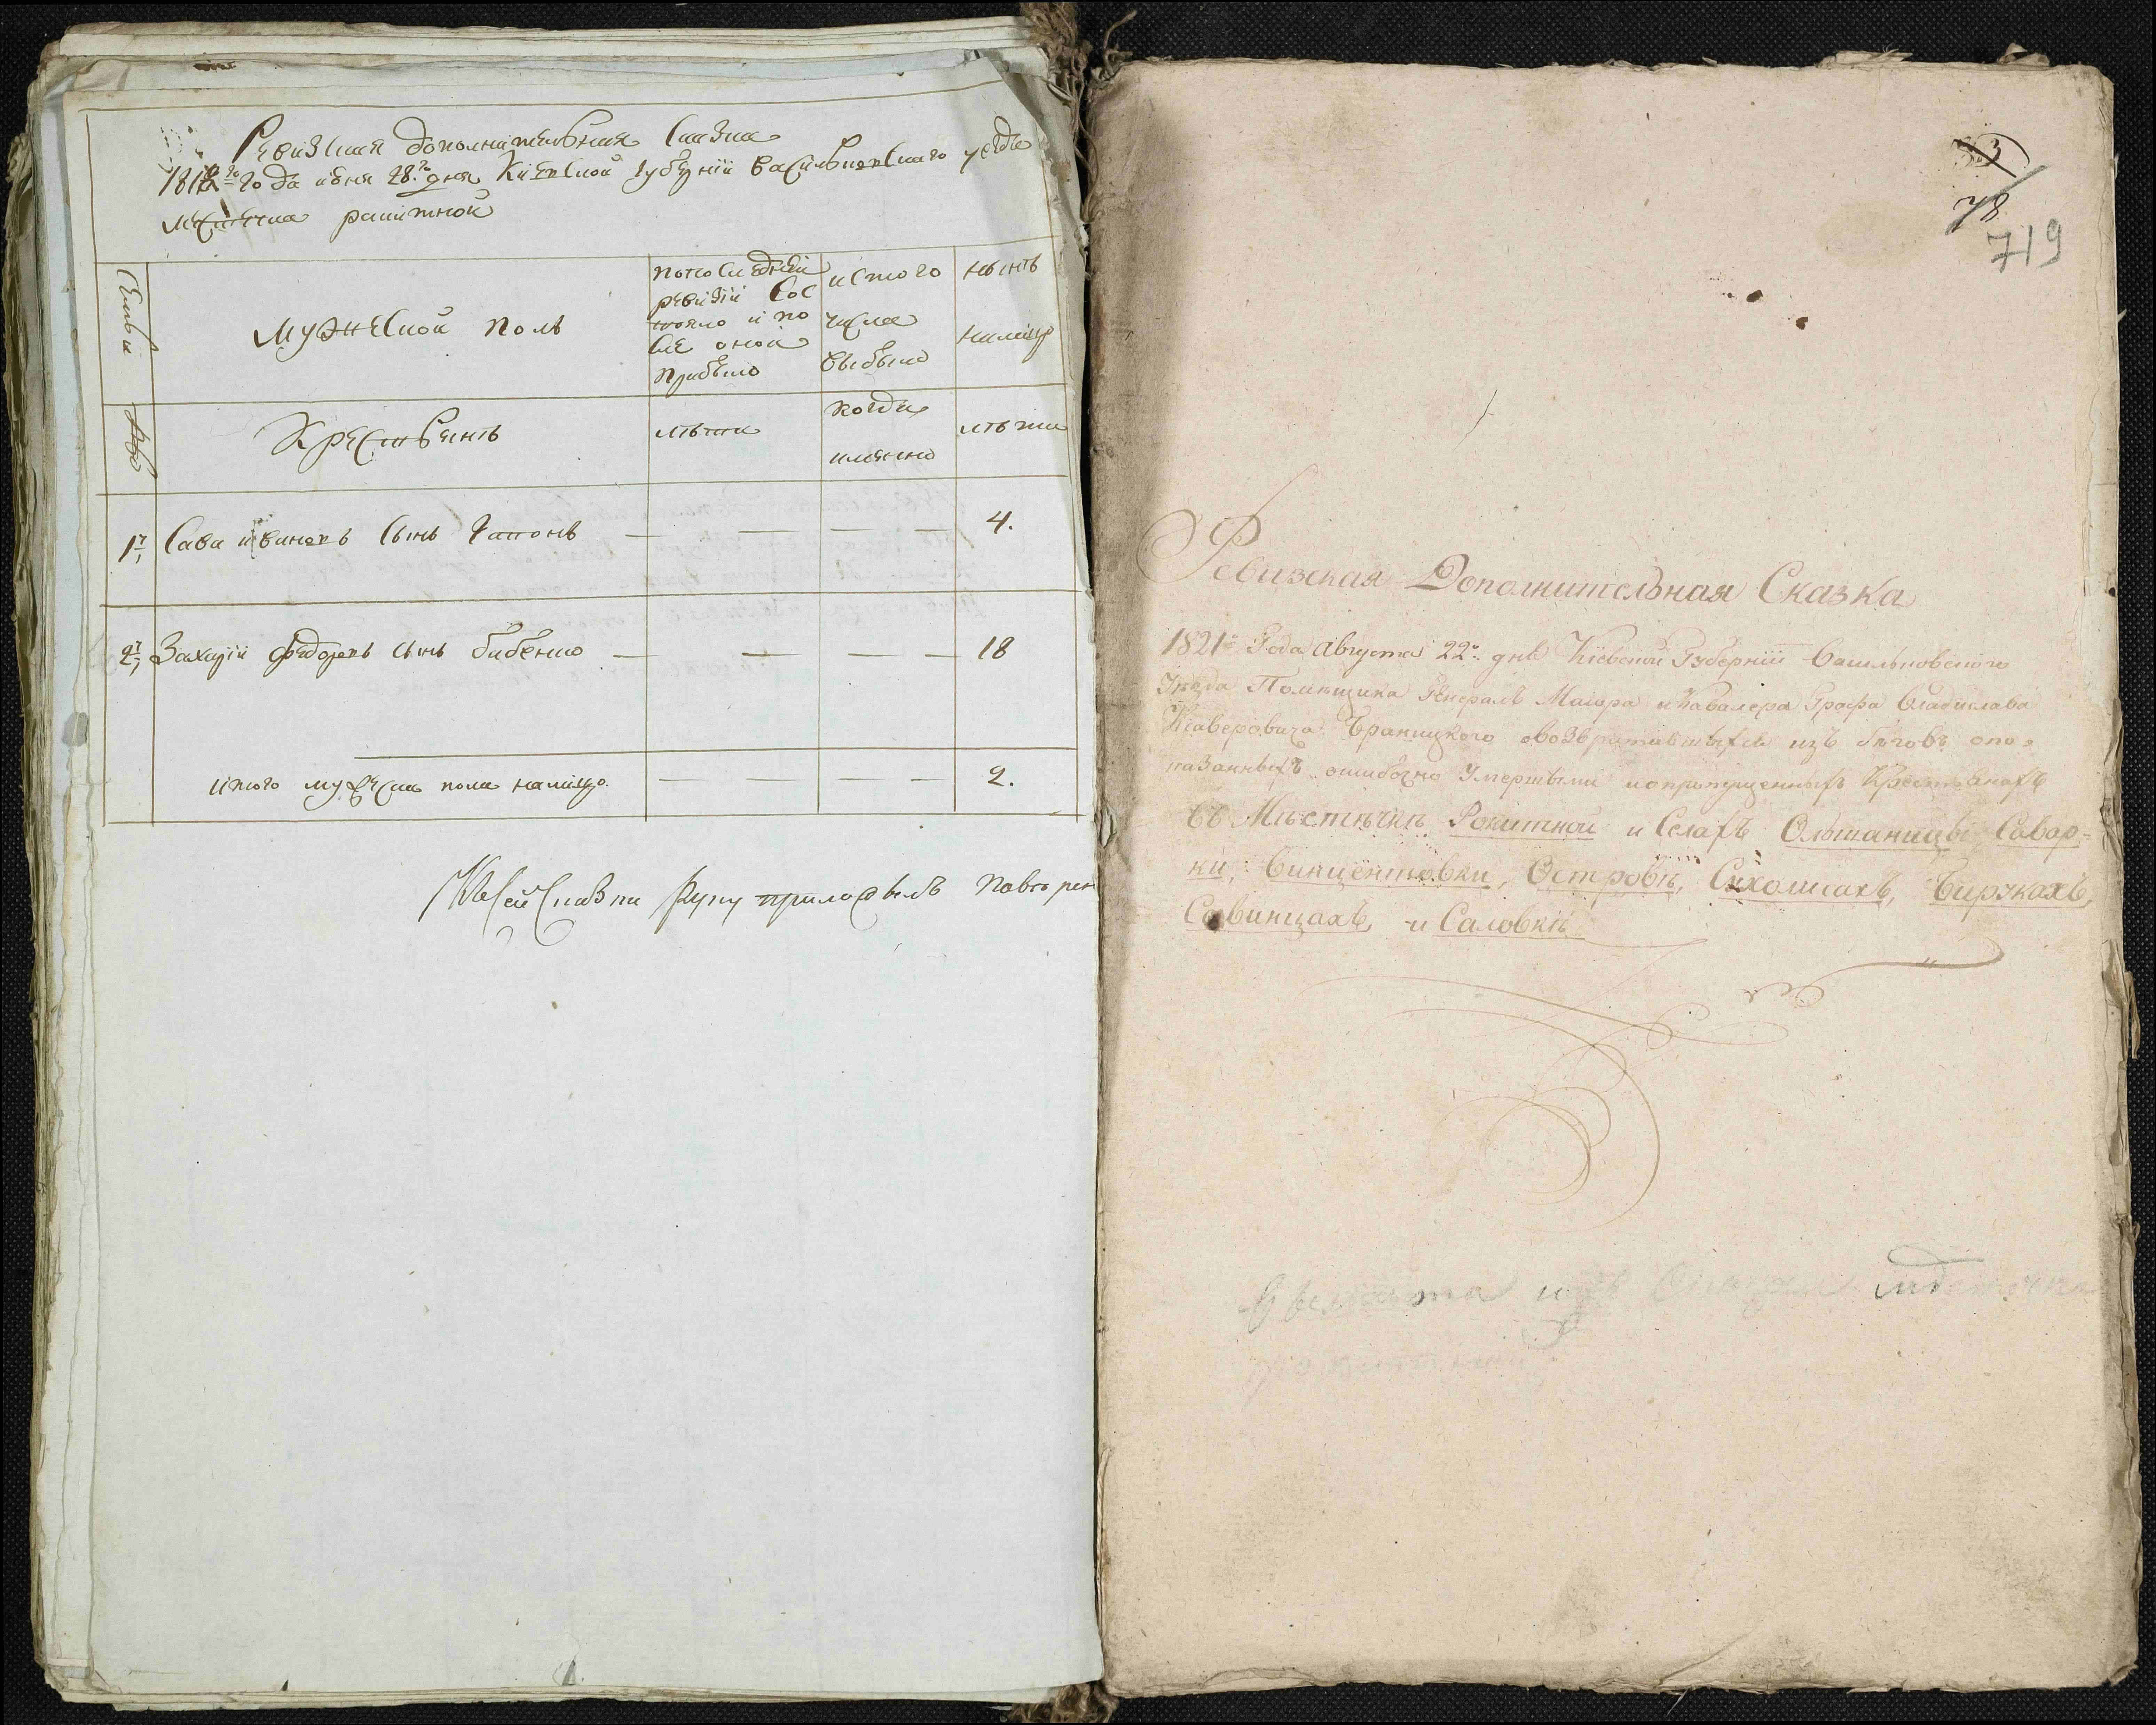 Ревизская дополнительная сказка
181 го года июня 28го дня Киевской губернии васильковскаго уезда
местечка ракитной
Семьи
мужеской полъ
по последней
ревизии сос
тояло и по
сле оной
прибыло
изтого
числа
выбыло
ныне
налицо
№
Крестьяне
лета
когда
именно
лета
1й Сава ивановъ сынъ — — — — 4.
2й Захарий федоровъ сынъ бибенко — — — — 18
итого мужеска пола налицо — — — — 2.
Ксей сказки руку приложылъ
3
78
719
Ревизская Дополнительная Сказка
1821го Года августа 22го дня Кіевской Губерніи Васильковского
Уезда Помещика Генералъ Маіора и Кавалера Графа Владислава
Ксаверовича Браницкого овозвратившихся изъ беговъ опо=
казанныхъ ошибочно Умершыми и опрапущенныхъ Крестьянахъ
въ Местечке Рокитной и Селахъ Ольшаницы, Савар=
ки, Винцентовки, Острове, Сухолисахъ, Бирукахъ,
Савинцахъ, и Саловке